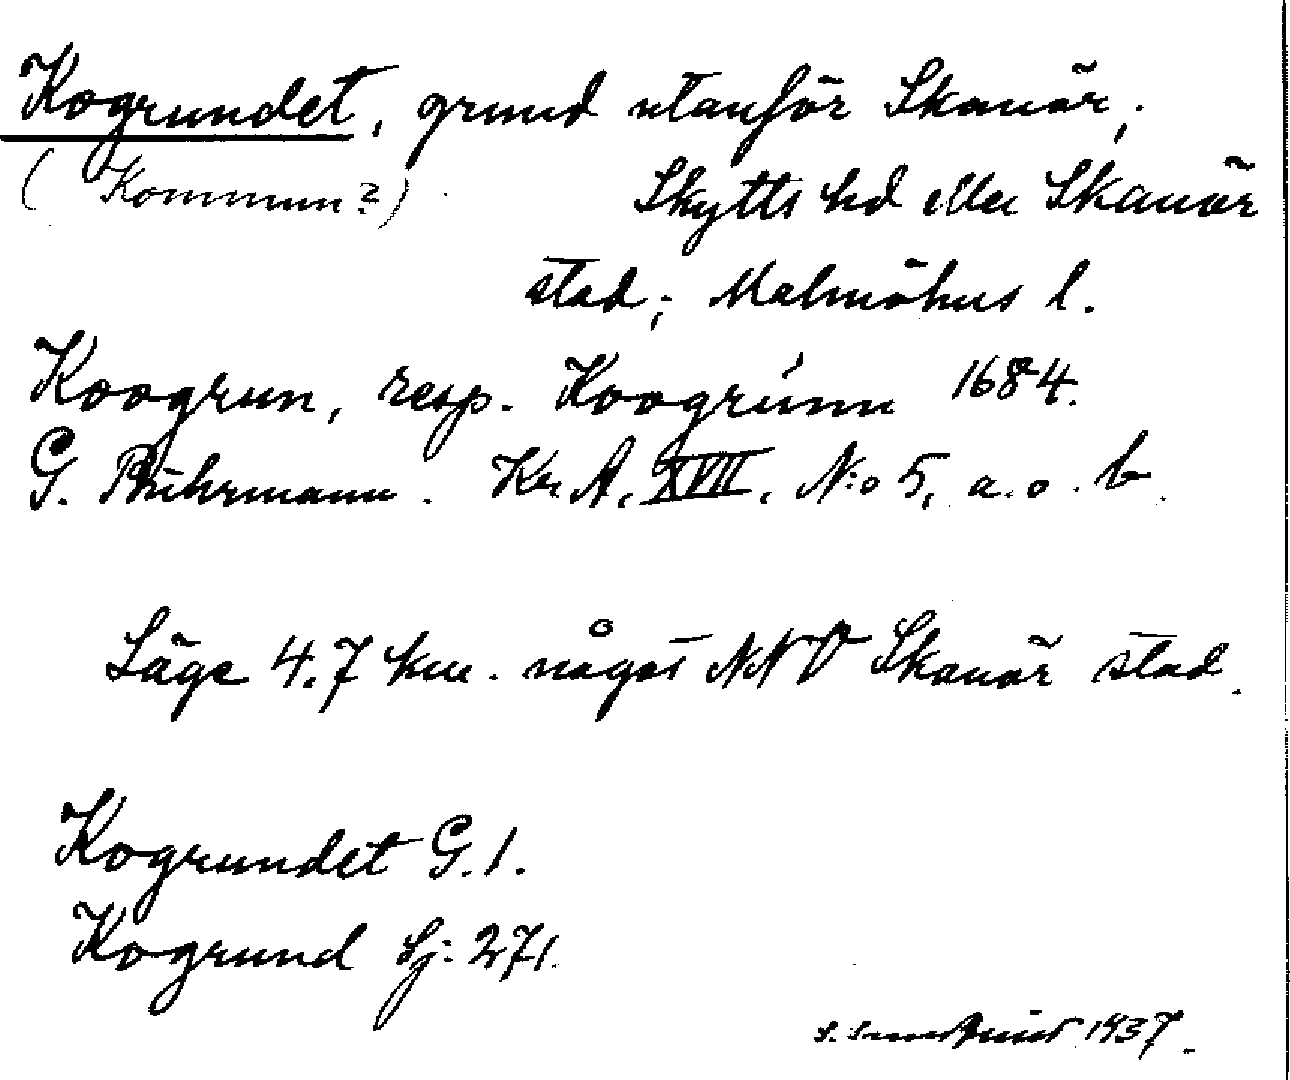 Kogrundet, grund utanför Skanör;
(Kommun?)
Skytts hd eller Skanör
stad; Malmöhus l.
Koogrun, resp. Koogrúnn 1684.
G. Buhrmann. Kr. A. XVII. N:o 5, a. o. b.
Läge 4.7 km. något NNV Skanör stad.
Kogrundet G.1.
Kogrund Sj. 271.
S. 1937.